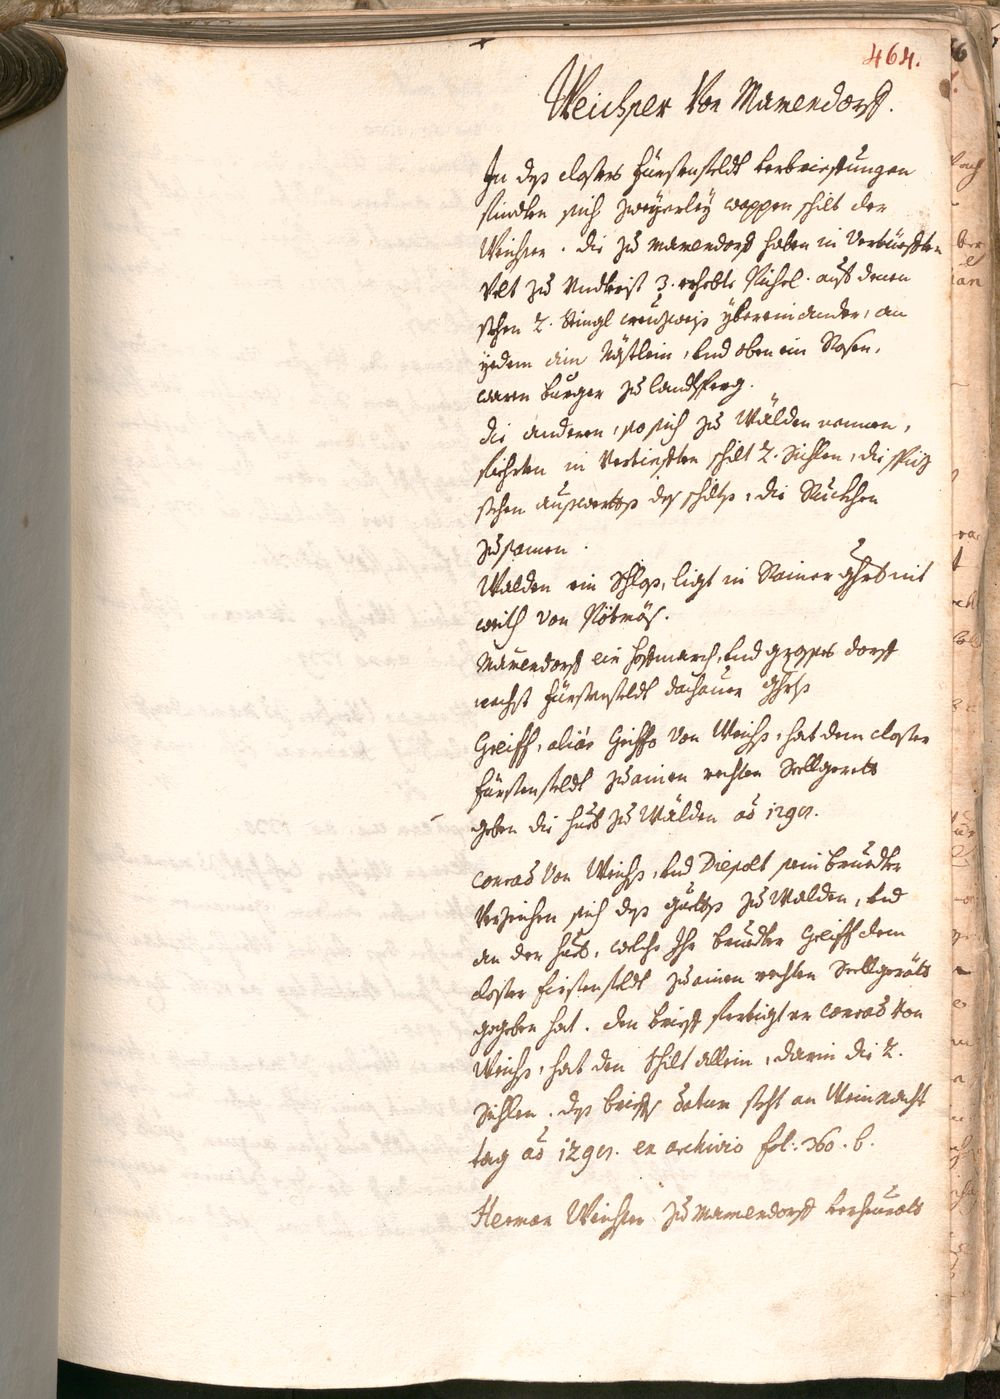 464.
Weichser Von Mamendorff.
In deß closters Fürstenfeldt verbrieffungen
findten sich zweyerley wappen schilt der
Weichser. die zu Mamendorff haben in Vertiefften
Velt zu Undterist 3. erhebte Pichel. auß denen
gehen 2. Stingl creuzweiß ybereinander, an
yedem ain Nästlein, und oben ein Rosen,
waren burger zu landtsperg.
die anderen, so sich zu Wälden nennen,
fiehrten in Vertiefften schilt 2. Sichlen, die spiz
sehen außwerttß deß schiltß, die Rückhen
zusamen.
Walden ein Schloß, ligt in Rainer ghrt nit
weith von Pötmöß.
Mamendorff ein hoffmarch, und grosses dorff
nechst Fürstenfeldt dachauer ghrtß
Greiff, aliàs Griffo von Weichß, hat dem closter
Fürstenfeldt zu ainen rechten Seellgerett
geben die hueb zu Wälden aō 129
Conrad von Weichß, und Diepolt sein brueder
Verzeichen sich deß guetts zu Walden, und
an der hueb, welche Ihr brueder Greiff dem
closter Firstenfeldt zu ainen rechten Seellgerätt
gegeben hat. den brieff fertigt er Conrad von
Weichß, hat den Schilt allein, darin die 2.
Sichlen. deß brieffs datum steht an Weinnacht
tag aō 129 ex archivio fol: 360. b.
Herman Weichser zu Mamendorff verheurath